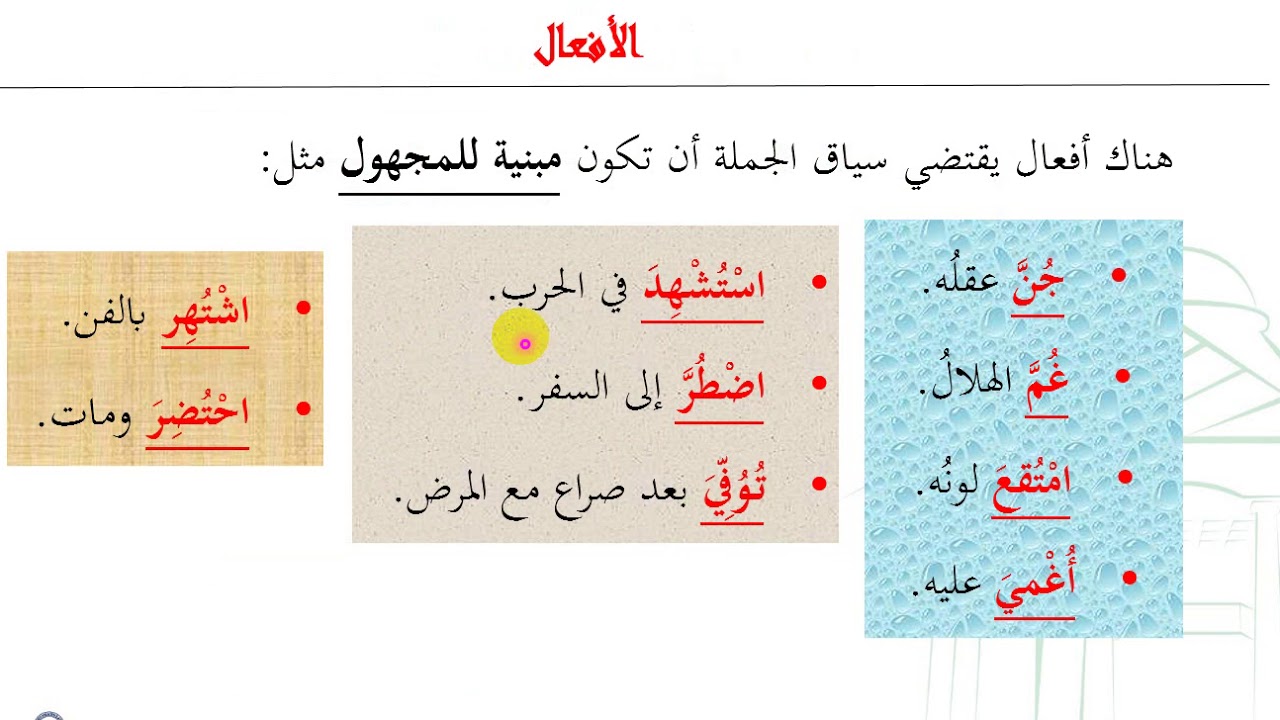 الأفعال
هناك أفعال يقتضي سياق الجملة أن تكون مبنية للمجهول مثل:
• جُنَّ عقلُه.
• غُمَّ الهلالُ.
• امْتُقعَ لونُه.
• أُغْميَ عليه.
• اسْتُشْهِدَ في الحرب.
• اضْطُرَّ إلى السفر.
• تُوُفِّيَ بعد صراع مع المرض.
• اشْتُهِر بالفن.
• احْتُضِرَ ومات.